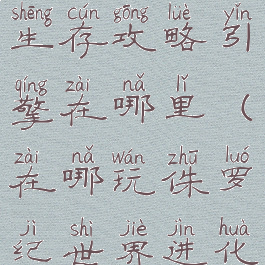 shēng cún gōng lüè yǐn
生存攻略引
qíng zài nǎ lǐ
擎在哪里（
zài nǎ wán zhū luó
在哪玩侏罗
jì shì jiè jìn huà
纪世界进化